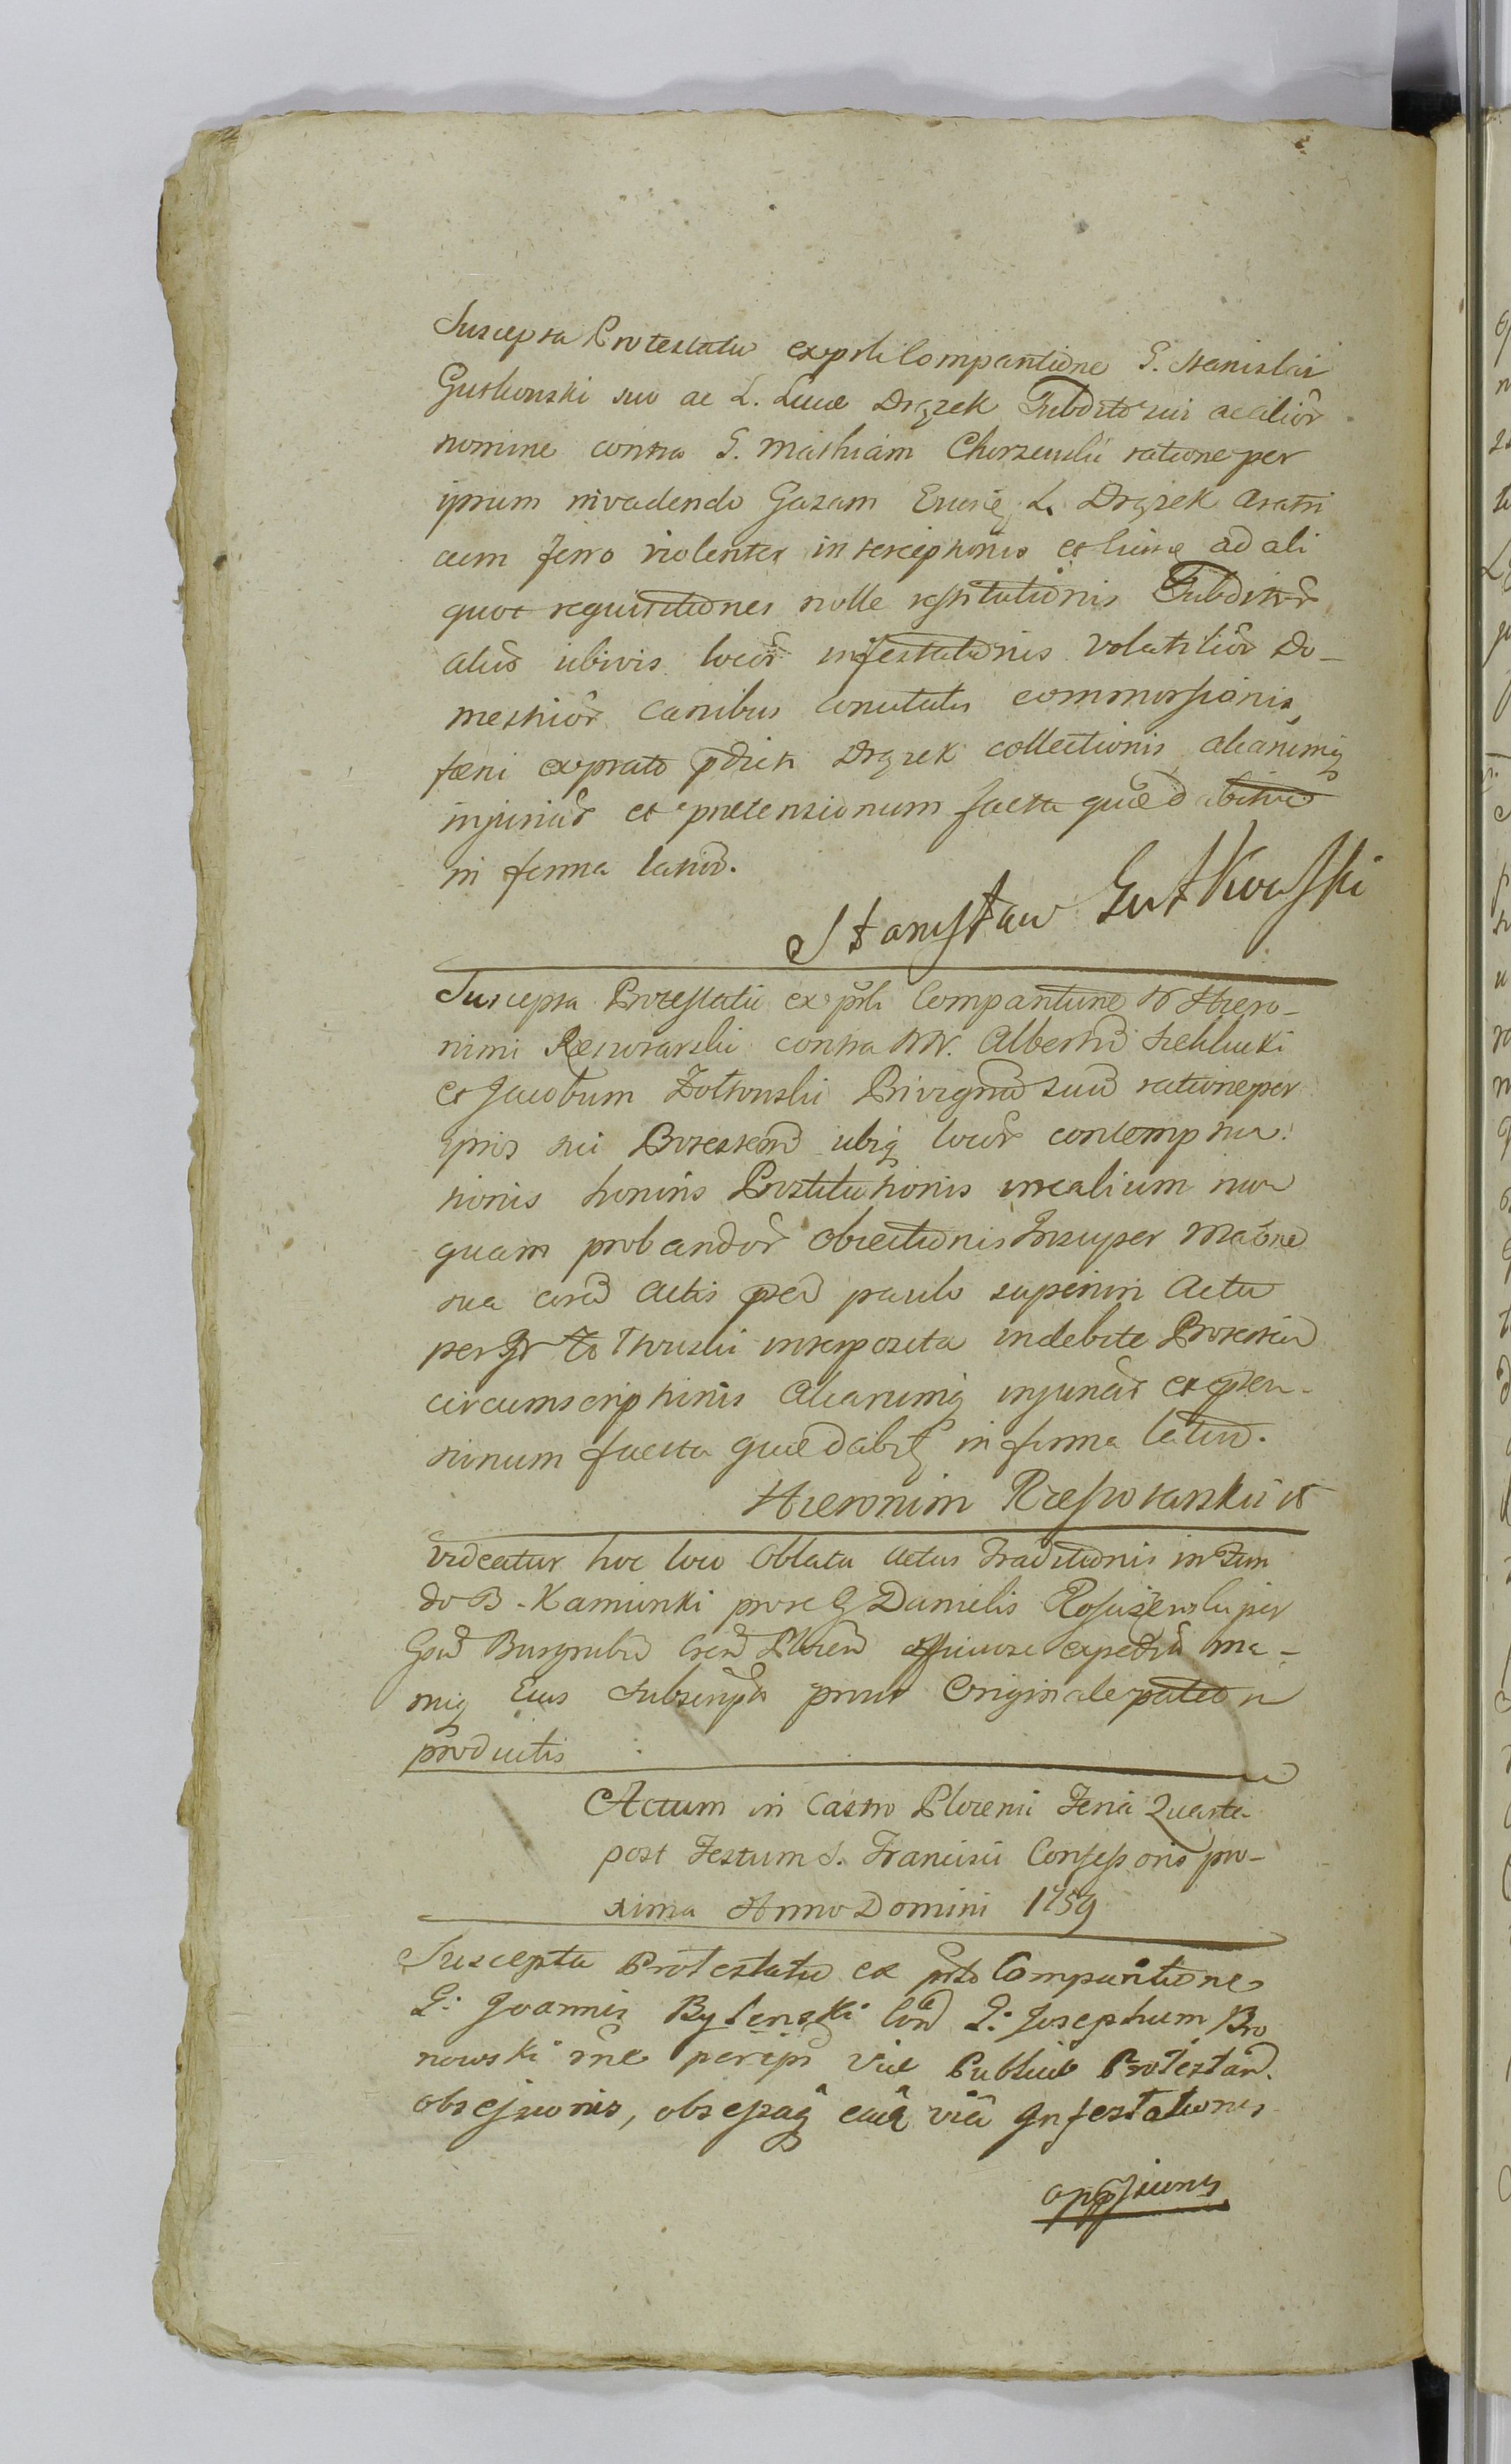 Suscepta Protestatio ex prti Comparitione G. Stanislai
Gutkowski suo ac L. Lucæ Drązek Subditor sui ac alior
nomine contra G. Mathiam Chorzewski ratione per
ipsum invadendo Gazam L. Drązek aratri
cum ferro violenter interceptionis et ad ali
quot requisitiones nolle restitutionis Subditor
alias ubivis locor infestationis volatilior Do-
mesticor canibus concitatis commorsionis,
fæni ex prato pdicti Drązek collectionis aliarumq
injuriar et prætensionum facta quæ dabitur
in forma latiori.
Stanisław Gutkowski
Suscepta Protestatio ex prti Comparitione G Hiero-
nimi Reszotarski contra GG. Albertum
et Jacobum Zołtowski Privignum suum ratione per
ipsos sui Protestem ubiq locor contempta-
tionis honoris Prostitutionis irrealium nun
quam probandor obiectionis Insuper Maone
sua coram actis psen paulo superiori actu
per Gr Zołtowski interposita indebite Protestem
circumscriptionis aliarumq injuriar et præten-
sionum facta quæ dabitr in forma latiori.
Hieronim Rzeszotarski
Videatur hoc loco Oblata actus Traditionis in Fun
do B. Kamionki pro re G Danielis per
Gsum Burgrabium Cren Plocen officiose expediti ma-
nuq Eius Subscripti prout Originale patet in
productis
Actum in Castro Plocensi Feria Quarta
post Festum S. Francisci Confessoris pro-
xima Anno Domini 1759
Suscepta Protestatio ex prti Comparitione
G. Joannis Bylenski con G. Josephum Bro
nowski rne per ips viæ Publicæ Protestan.
obsessionis, obsessaq eaq via Infestationis
oppssionis